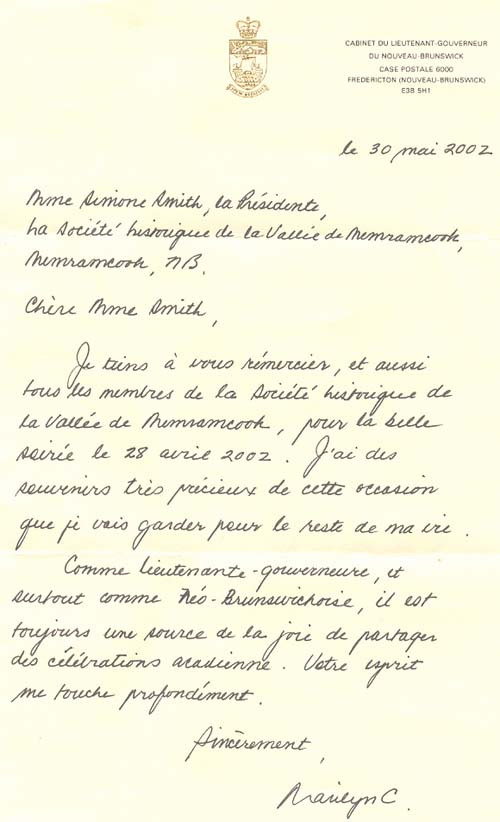 CABINET DU LIEUTENANT-GOUVERNEUR
DU NOUVEAU-BRUNSWICK
CASE POSTALE 6000
FREDERICTON (NOUVEAU-BRUNSWICK)
E3B 5H1
le 30 mai 2002
Mme Simone Smith, la Présidente,
La Société historique de la Vallée de Memramcook,
Memramcook, NB.
Chère Mme Smith,
Je tiens à vous rémercier, et aussi
tous les membres de la Société historique de
la Vallée de Memramcook, pour la belle
soirée le 28 avril 2002. J'ai des
souvenirs très précieux de cette occasion
que je vais garder pour le reste de ma vie.
Comme Lieutenante-gouverneure, et
surtout comme Néo-Brunswickoise, il est
toujours une source de la joie de partager
des célébrations acadienne. Votre esprit
me touche profondément.
Sincèrement,
Marilyn C.